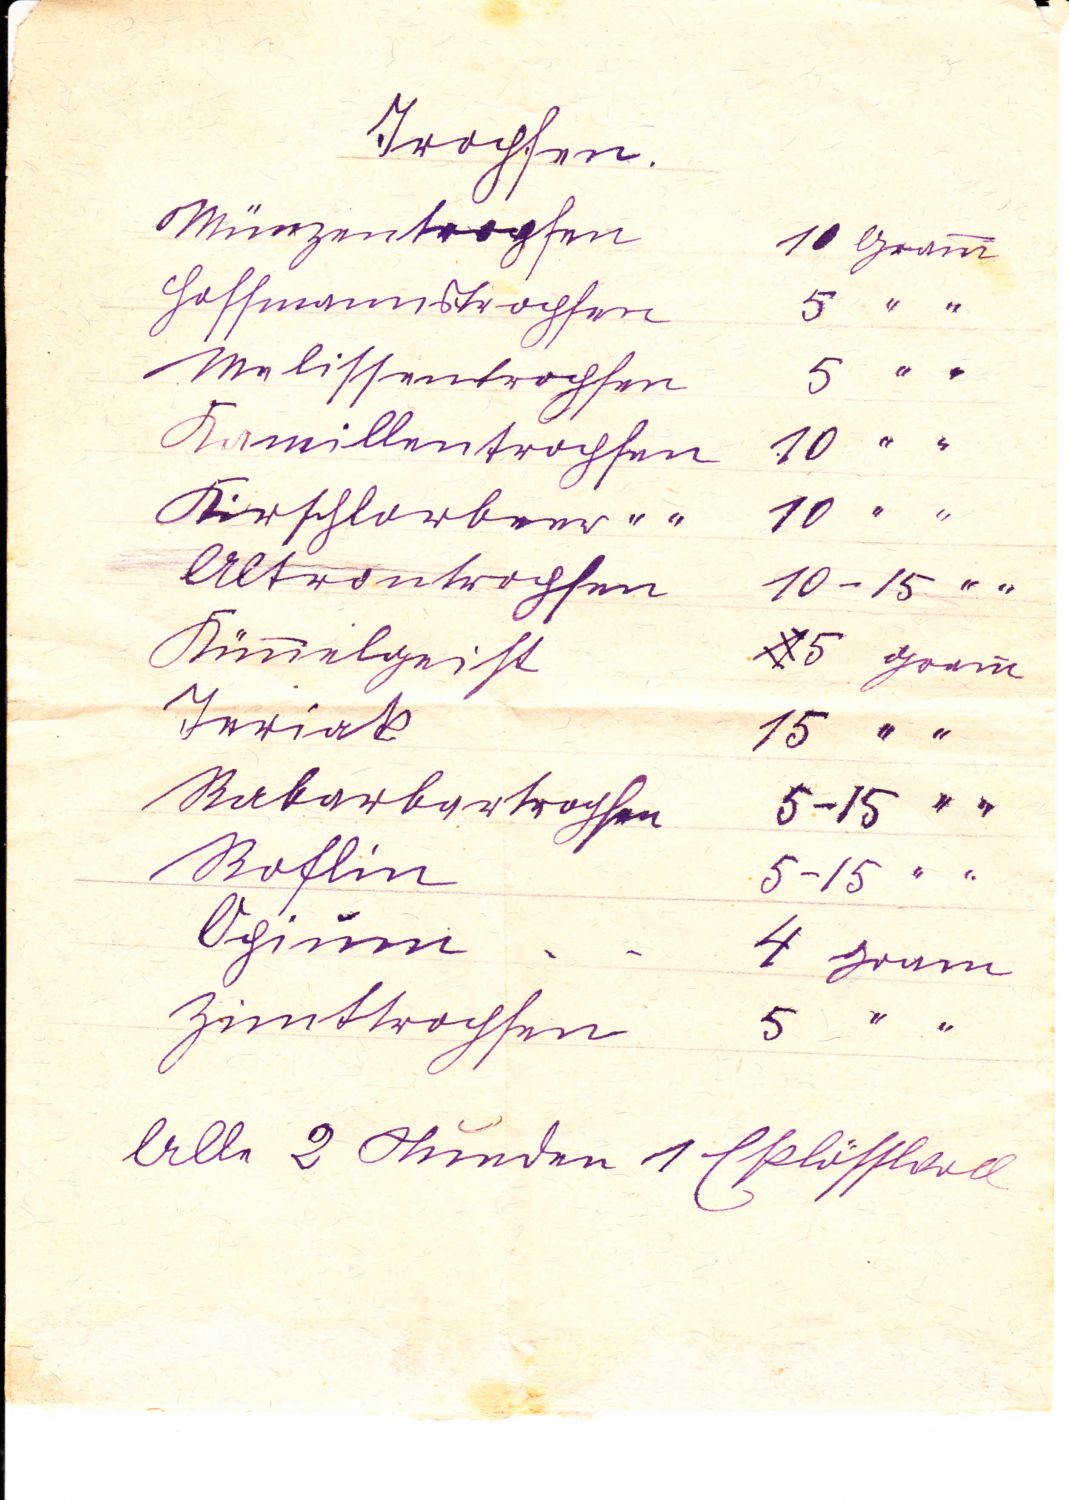 Tropfen.
Münzentropfen 10 Gram̅
Hoffmannstropfen 5 " "
Melissentropfen 5 " "
Kamillentropfen 10 " "
Kirschlorbeer " " 10 " "
Altrontropfen 10-15 " "
Küm̅elgeist 5 gram̅
Teriak 15 " "
Rabarbartropfen 5-15 " "
Roflin 5-15 " "
Opium - - 4 gram
Zimttropfen 5 " "
Alle 2 Stunden 1